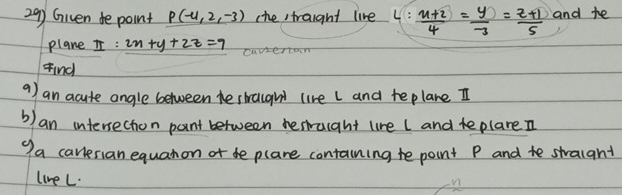 29) Given te point P(-4,2,-3) , the straight line L : x+2/4 = y/-3 = z+1/5 and te
plane II : 2x+y+2z=9
cartesian
Find
a) an acute angle between te straight line L and te plane II
b) an intersection point between te straight line L and te plane II
c) a cartesian equation of te plane containing te point P and te straight
line L.
n